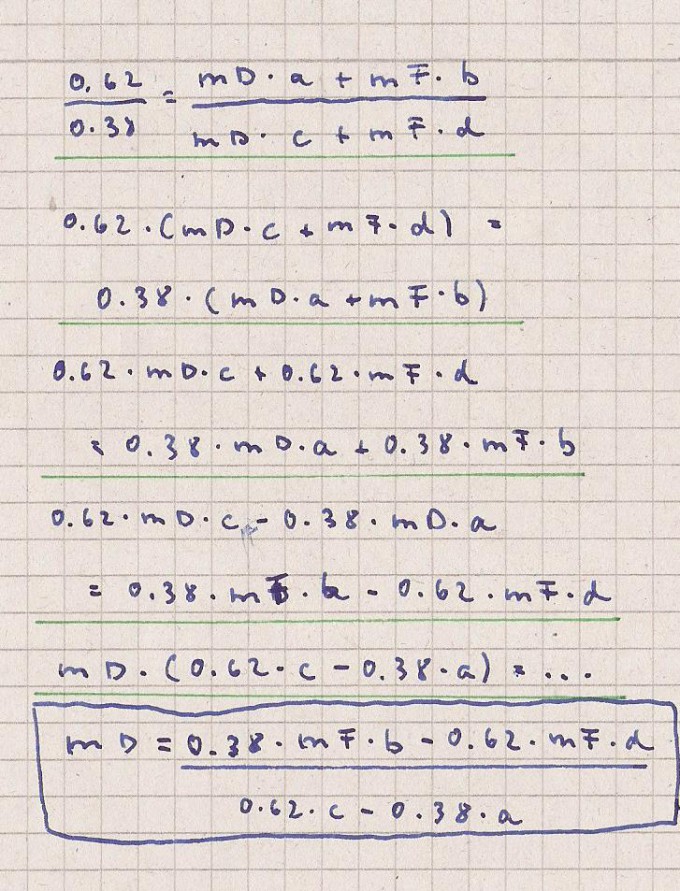 0.62 = mD · a + mF · b
0.38 mD · c + mF · d
0.62 · (mD · c + mF · d) =
0.38 · (mD · a + mF · b)
0.62 · mD · c + 0.62 · mF · d
= 0.38 · mD · a + 0.38 · mF · b
0.62 · mD · c - 0.38 · mD · a
= 0.38 · mF · b - 0.62 · mF · d
mD · (0.62 · c - 0.38 · a) = ...
mD = 0.38 · mF · b - 0.62 · mF · d
0.62 · c - 0.38 · a